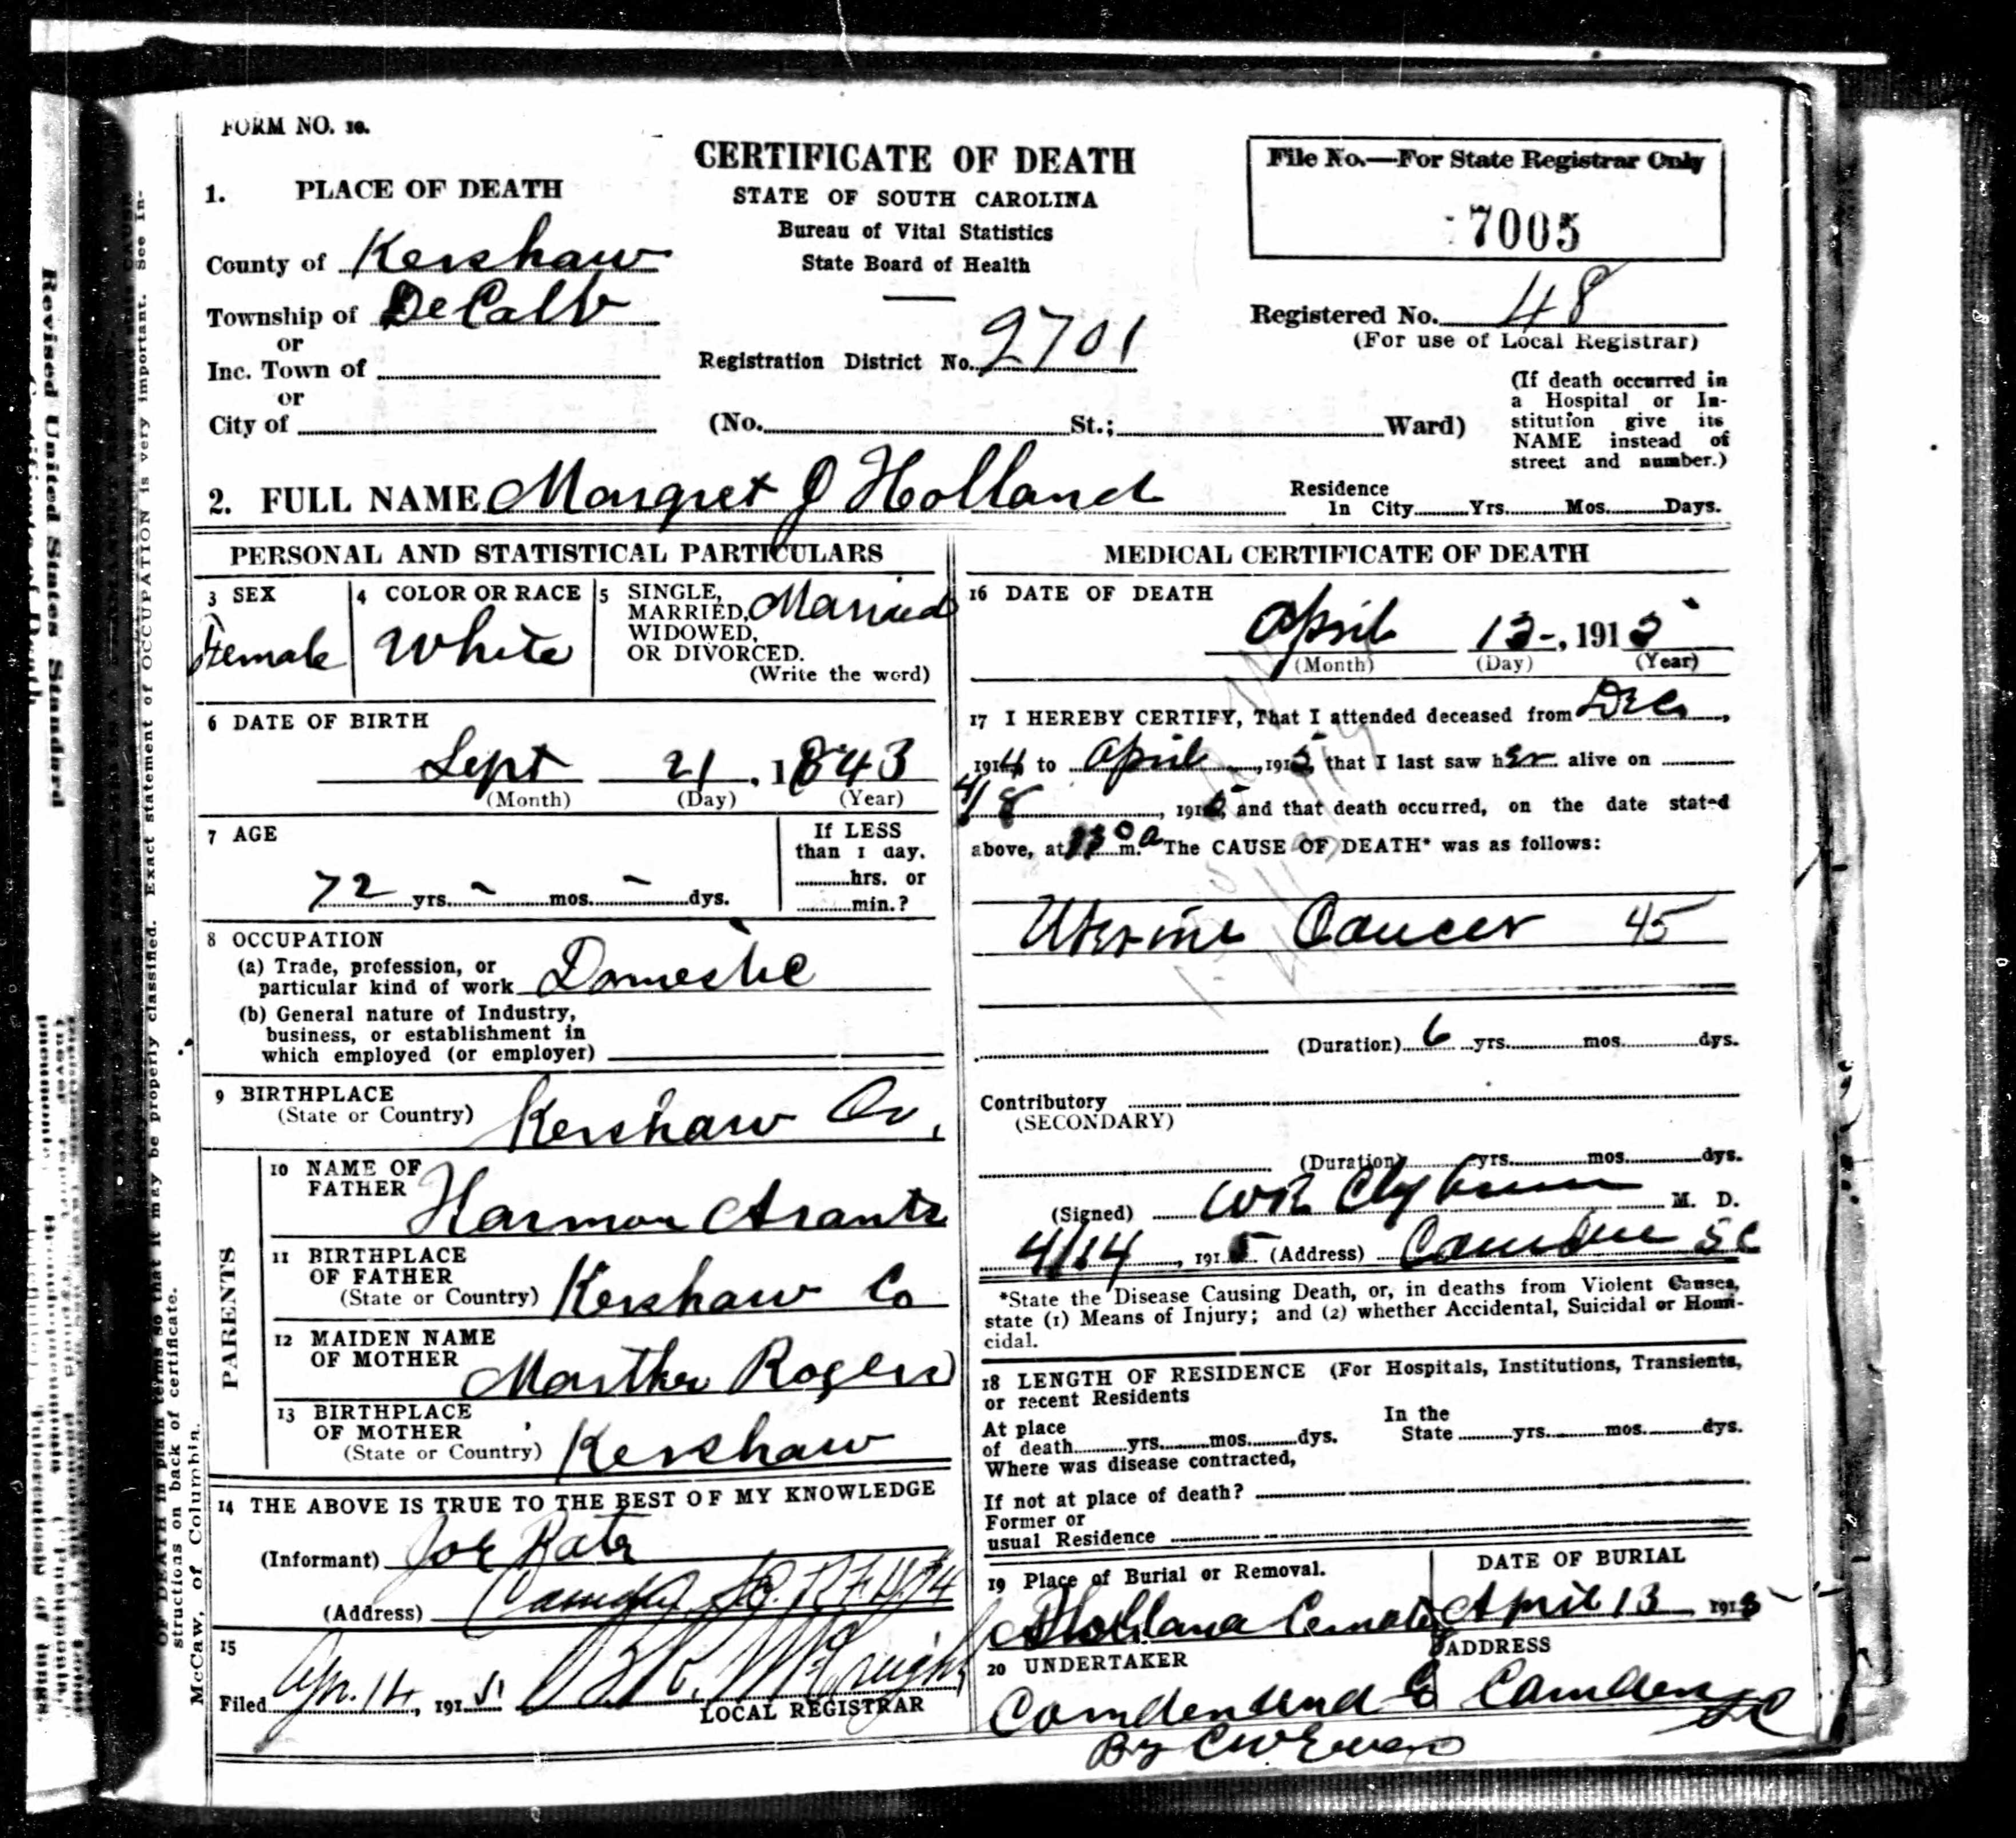 FORM NO. 10.
CERTIFICATE OF DEATH
STATE OF SOUTH CAROLINA
Bureau of Vital Statistics
State Board of Health
File No.—For State Registrar Only
7005
1. PLACE OF DEATH
County of Kershaw
Township of DeCalb
or
Inc. Town of
or
City of
Registration District No. 2701
Registered No. 48
(For use of Local Registrar)
(No. St.; Ward)
(If death occurred in
a Hospital or In-
stitution give its
NAME instead of
street and number.)
2. FULL NAME Margret J Holland
Residence
In City Yrs. Mos. Days.
PERSONAL AND STATISTICAL PARTICULARS
3 SEX
Female
4 COLOR OR RACE
White
5 SINGLE,
MARRIED,
WIDOWED,
OR DIVORCED.
(Write the word)
Married
6 DATE OF BIRTH
Sept 21, 1843
(Month) (Day) (Year)
7 AGE
72 yrs. - mos. - dys.
If LESS
than 1 day,
hrs. or
min.?
8 OCCUPATION
(a) Trade, profession, or
particular kind of work Domestic
(b) General nature of Industry,
business, or establishment in
which employed (or employer)
9 BIRTHPLACE
(State or Country) Kershaw Co,
PARENTS
10 NAME OF
FATHER Harmon Arants
11 BIRTHPLACE
OF FATHER
(State or Country) Kershaw Co
12 MAIDEN NAME
OF MOTHER Marther Rogers
13 BIRTHPLACE
OF MOTHER
(State or Country) Kershaw
14 THE ABOVE IS TRUE TO THE BEST OF MY KNOWLEDGE
(Informant) Joe
(Address) Camden
15
Filed Apr. 14, 1915
LOCAL REGISTRAR
MEDICAL CERTIFICATE OF DEATH
16 DATE OF DEATH
April 1915
(Month) (Day) (Year)
17 I HEREBY CERTIFY, That I attended deceased from Dec,
1914 to April, 1915, that I last saw her alive on
4/8, 1915, and that death occurred, on the date stated
above, at m. a The CAUSE OF DEATH* was as follows:
Uterine Cancer 45
(Duration) 6 yrs. mos. dys.
Contributory
(SECONDARY)
(Duration) yrs. mos. dys.
(Signed) WR Clyburn M. D.
4/14, 1915 (Address) Camden SC
*State the Disease Causing Death, or, in deaths from Violent Causes,
state (1) Means of Injury; and (2) whether Accidental, Suicidal or Homi-
cidal.
18 LENGTH OF RESIDENCE (For Hospitals, Institutions, Transients,
or recent Residents
At place
of death yrs. mos. dys.
In the
State yrs. mos. dys.
Where was disease contracted,
If not at place of death?
Former or
usual Residence
19 Place of Burial or Removal.
DATE OF BURIAL
April 13 1915
20 UNDERTAKER
ADDRESS
Camden Und Co Camden SC
By CW Evans
OF DEATH in plain terms so that it may be properly classified. Exact statement of OCCUPATION is very important. See In-
structions on back of certificate.
McCaw, of Columbia.
Revised United States Standard